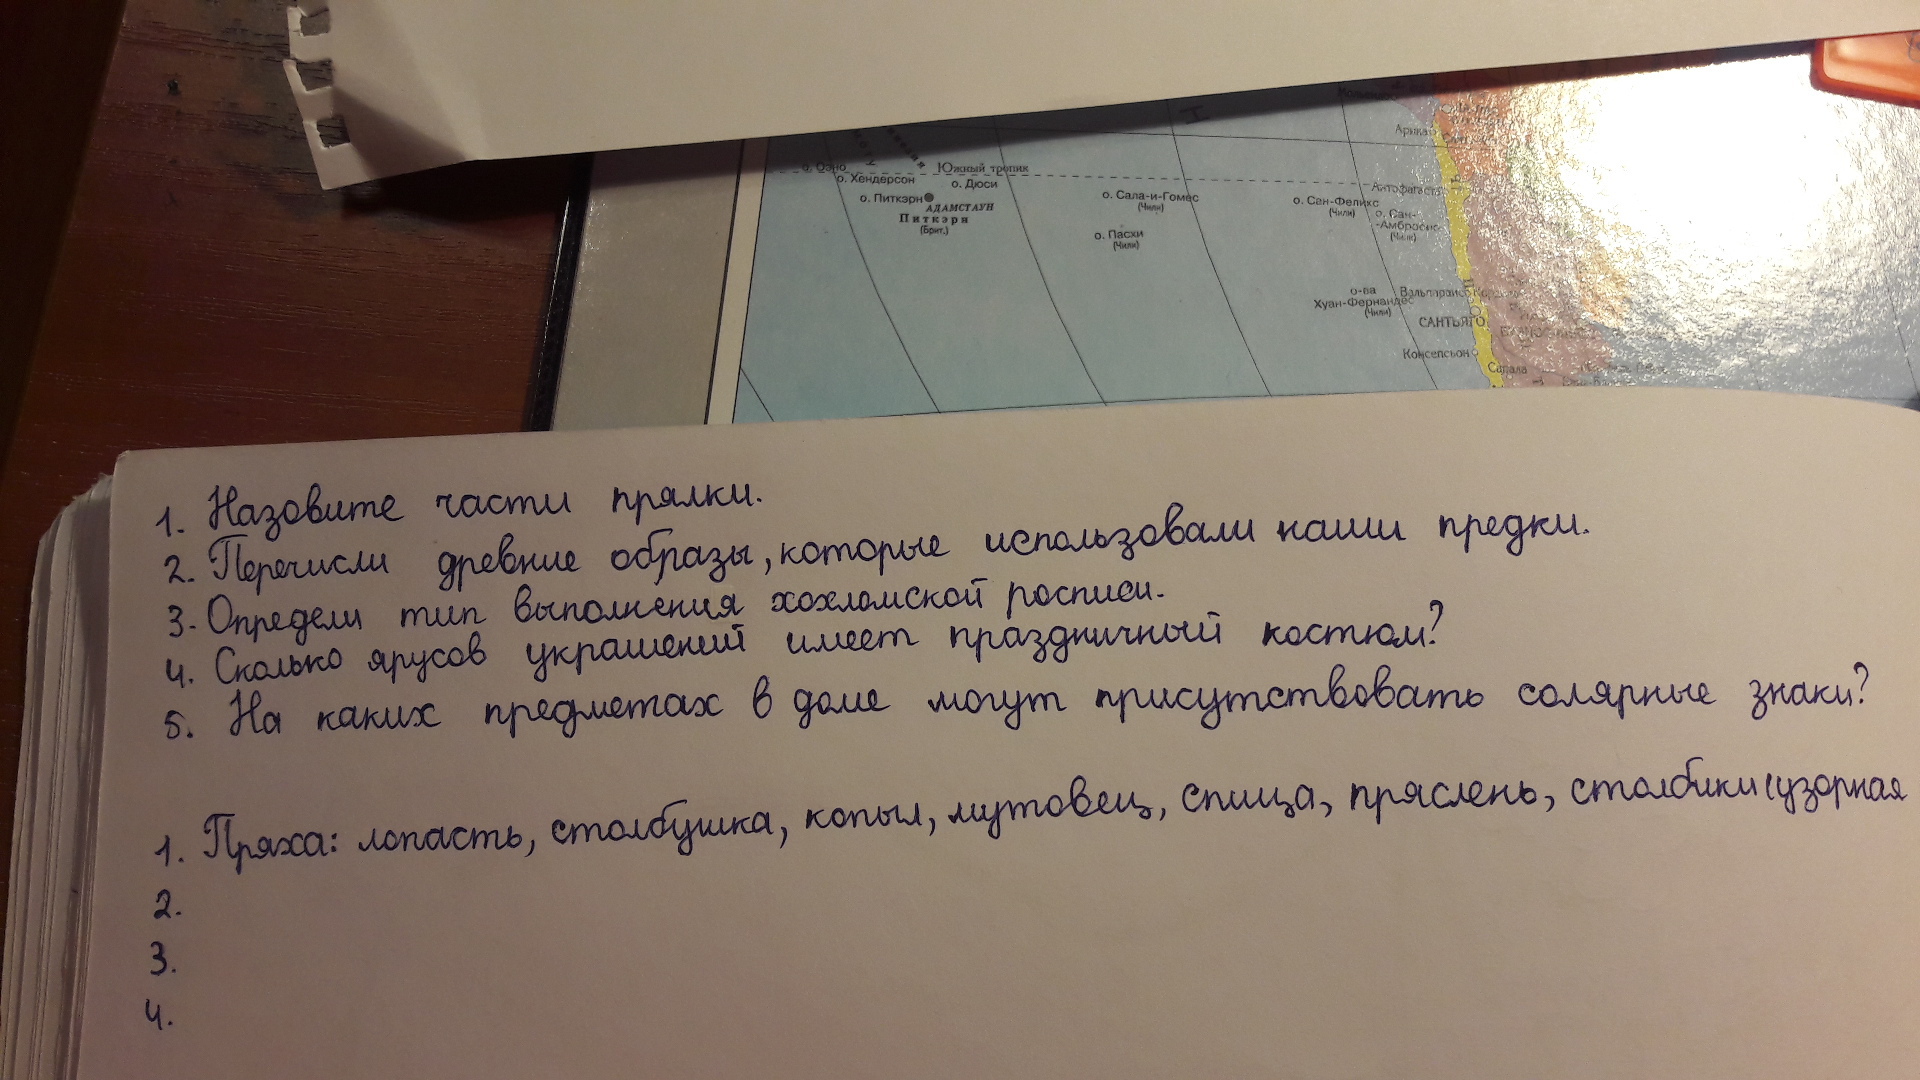 о. Оэно
Южный тропик
о. Хендерсон
о. Дюси
о. Питкэрн
АДАМСТАУН
Питкэрн
(Брит.)
о. Сала-и-Гомес
(Чили)
о. Пасхи
(Чили)
Арика
Антофагаста
о. Сан-Феликс
(Чили)
о. Сан-
-Амбросио
(Чили)
о-ва
Хуан-Фернандес
(Чили)
Вальпараисо
САНТЬЯГО
Консепсьон
1. Назовите части прялки.
2. Перечисли древние образы, которые использовали наши предки.
3. Определи тип выполнения хохломской росписи.
4. Сколько ярусов украшений имеет праздничный костюм?
5. На каких предметах в доме могут присутствовать солярные знаки?
1. Пряха: лопасть, столбушка, копыл, мутовец, спица, пряслень, столбики (узорная
2.
3.
4.